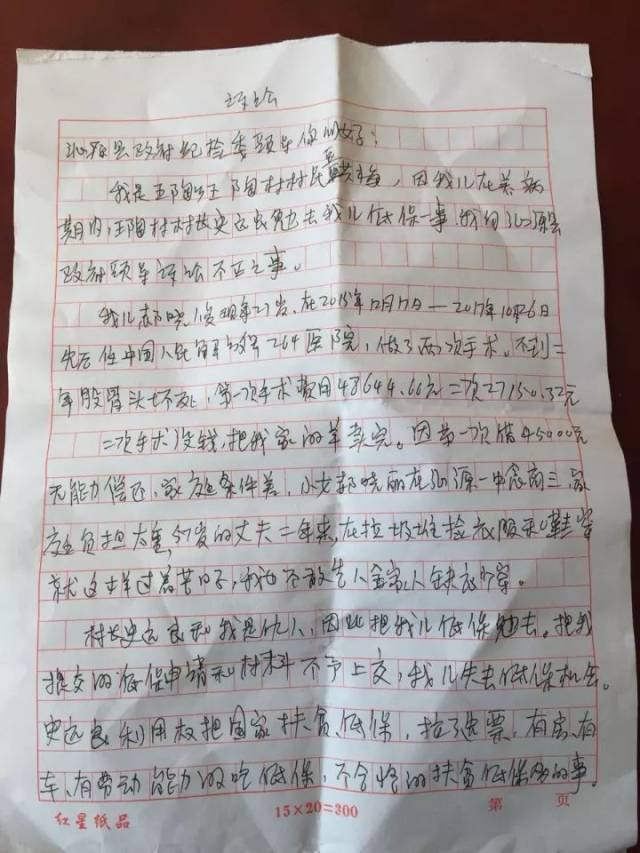 评论
沁源县政府纪检委领导你们好：
我是王陶乡王陶村村民，因我儿在养病
期内，王陶村村长史远良免去我儿低保一事，向沁源县
政府领导评论不正之事。
我儿郝晓俊现年27岁，在2015年12月17日—2017年10月26日
先后住中国人民解放军264医院，做了两次手术。不到二
年股骨头坏死，第一次手术费用48644.66元二次27150.32元
二次手术没钱，把我家的羊卖完。因第一次借45000元
无能力偿还，家庭条件差，小女郝晓丽在沁源一中念高三，家
庭负担太重，57岁的丈夫二年来，在垃圾堆捡衣服和鞋穿
就这样过着苦日子，我怕不敢告人全家人缺衣少穿。
村长史远良和我是仇人，因此把我儿低保免去。把我
提交的低保申请和材料不予上交，我儿失去低保机会。
史远良利用权把国家扶贫、低保，拉了选票，有房、有
车、有劳动能力的吃低保，不合格的扶贫低保多的事。
红星纸品
15×20=300
第 页